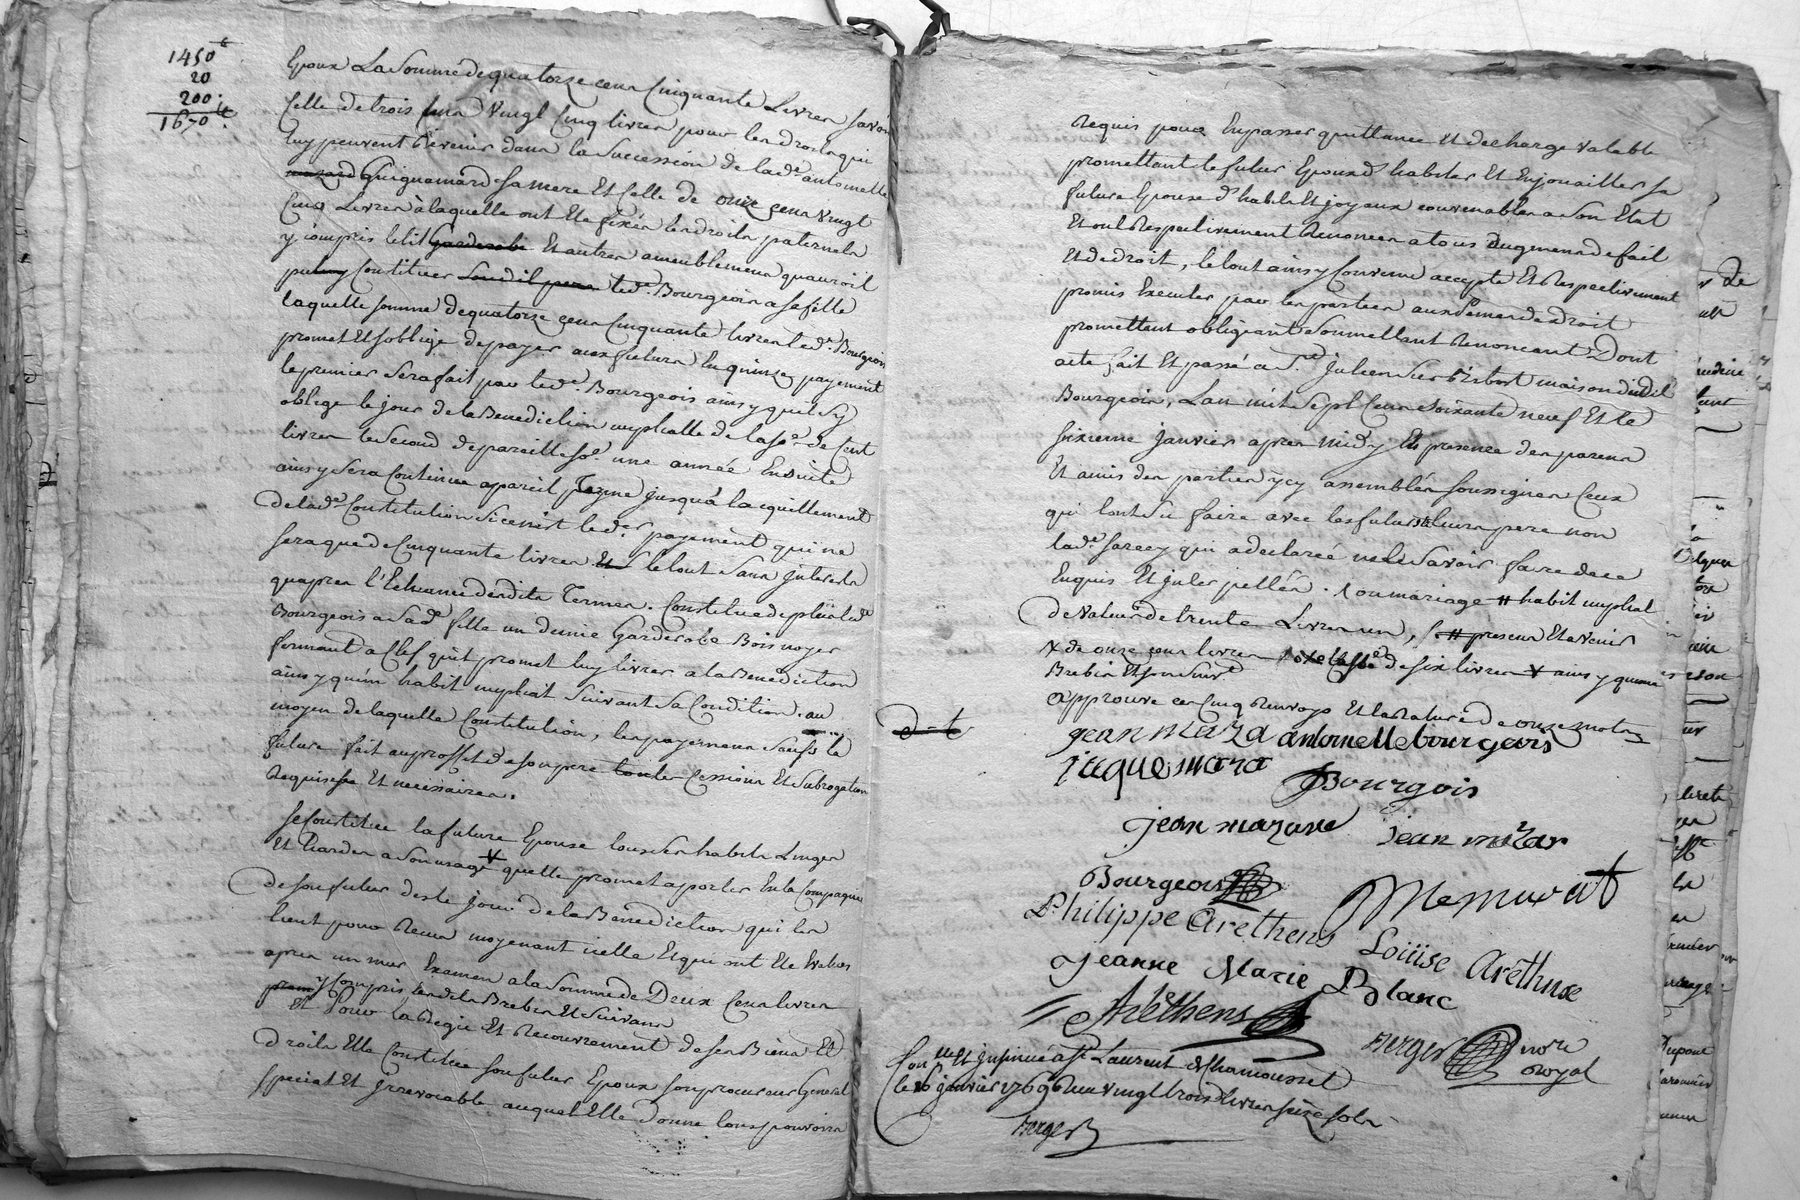 1450 tt
20
200
1670 tt
Epoux La Somme de quatorze cens Cinquante Livres savoir
Celle de trois Cens Vingt Cinq livres pour les droits qui
luy peuvent Revenir dans la Succession de lad.e antoinette
Guignamard sa mere Et Celle de onze cens Vingt
Cinq Livres à laquelle ont Ete fixés les droits paternels
y compris le lit garderobe Et autres ameublemens qu'auroit
pu luy Constituer led.t Bourgeois a sa fille
laquelle somme de quatorze cens Cinquante livres led.t Bourgeois
promet Et s'oblige de payer aux futurs En quinze payemens
le premier sera fait par led.t Bourgeois ainsy qu'il s'y
oblige le jour de la Benediction nuptialle de la so.e de Cent
livres le second de pareille so.e une année Ensuitte
ainsy sera Continué a pareil terme jusqu'a lacquittement
de lad.e Constitution si ce n'est le d.er payement qui ne
sera que de Cinquante livres Et le tout sans jnterets
qu'apres l'Echeance desdits Termes. Constitue de plus led.t
Bourgeois a sad.e fille un demie Garderobe Bois noyer
fermant a Clef qu'il promet luy livrer a la Benediction
ainsy qu'un habit nuptial suivant sa Condition. au
moyen de laquelle Constitution, les payemens Saufs la
future fait au proffit de son pere toutes Cessions Et Subrogation
Requises Et necessaires.
se Constitue la future Epouse tous ses habits Linges
Et hardes a son usage quelle promet aporter En la Compagnie
de son futur des le jour de la Benediction qui les
tient pour Recus moyenant icelle Et qui ont Ete Evalués
apres un mur Examen a la Somme de Deux Cens livres
y Compris lesdits Brebis Et suivans
Et Pour la Regie Et Recouvrement de ses Biens Et
droits Elle Constitue son futur Epoux son procureur General
special Et jrrevocable auquel Elle donne tous pouvoirs
Requis pour En passer quittance Et decharge Valable
promettant le futur Epoux d'habiller Et Enjouailler sa
future Epouse d'habits Et joyaux convenables a son Etat
Et ont Respectivement Renoncer a tous augmens de fait
Et de droit, le tout ainsy Convenu accepté Et Respectivement
promis Executer par les parties aux Peines de droit
promettant obligeant soumettant Renoncant Dont
acte fait Et passé a St julien sur Bibost maison dudit
Bourgeois, Lan mil Sept Cens soixante neuf Et le
sixieme janvier apres midy En presence des parens
Et amis des parties ycy assemblés soussignés Ceux
qui l'ont su faire avec les futurs leurs pere non
lad.e sarcey qui a declareé ne le savoir faire de ce
Enquis Et jnterpellés. ou mariage # habit nuptial
de Valeur de trente Livres un, # presens Et avenir
x de onze cens livres de six livres + ainsy quune
Brebis Et son suiv.t
approuvé ces Cinq Renvoys Et la Rature de onze mots
jean maza antoinette bourgois
jaque maza
Bourgois
jean mazave jean mazar
Bourgeois
Memurat
Philippe Arethens
Louise Aréthuse
jeanne Marie Blanc
Aréthens
Berger nore
royal
Con.lle Et jnsinué a St Laurent de Chamousset
le 16 janvier 1769 Recu vingt trois livres seize sols
Berger